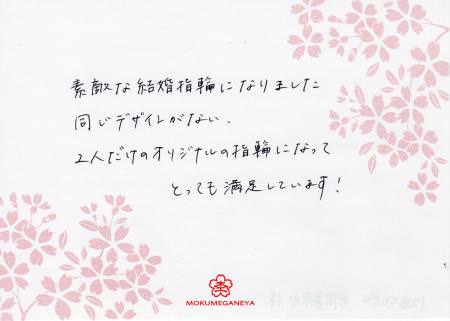 素敵な結婚指輪になりました
同じデザインがない、
2人だけのオリジナルの指輪になって
とっても満足しています!
MOKUMEGANEYA